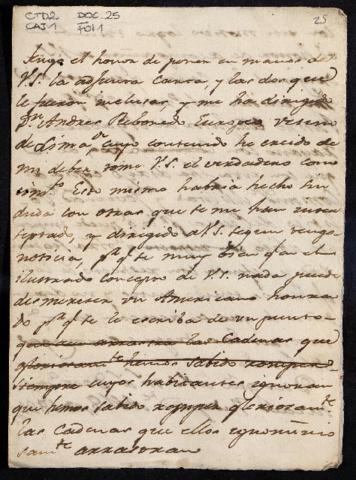 CTD2 DOC. 25
CAJ 1 FOL 1
25
Tengo el honor de poner en manos de
V.S. la adjunta Carta, y las dos que
le fueron inclusas, y me ha dirigido
Dn Andres Rebonedo vecino
de Lima, cuyo contenido he creido de
mi deber tome V.S. el verdadero cono
cimto. Esto mismo habria hecho sin
duda con otras que se me han
y dirigido a V.S. segun tengo
noticia, pr qe se muy bien que el
ilustrado concepto de V.S. nada puede
desmerecer un Americano honra
do pr qe se le escriba de un punto
que aun arrastra las cadenas que
gloriosamte hemos sabido romper
siempre cuyos habitantes ignoran
que hemos sabido romper gloriosamte
las cadenas que ellos ignominio
samte arrastran